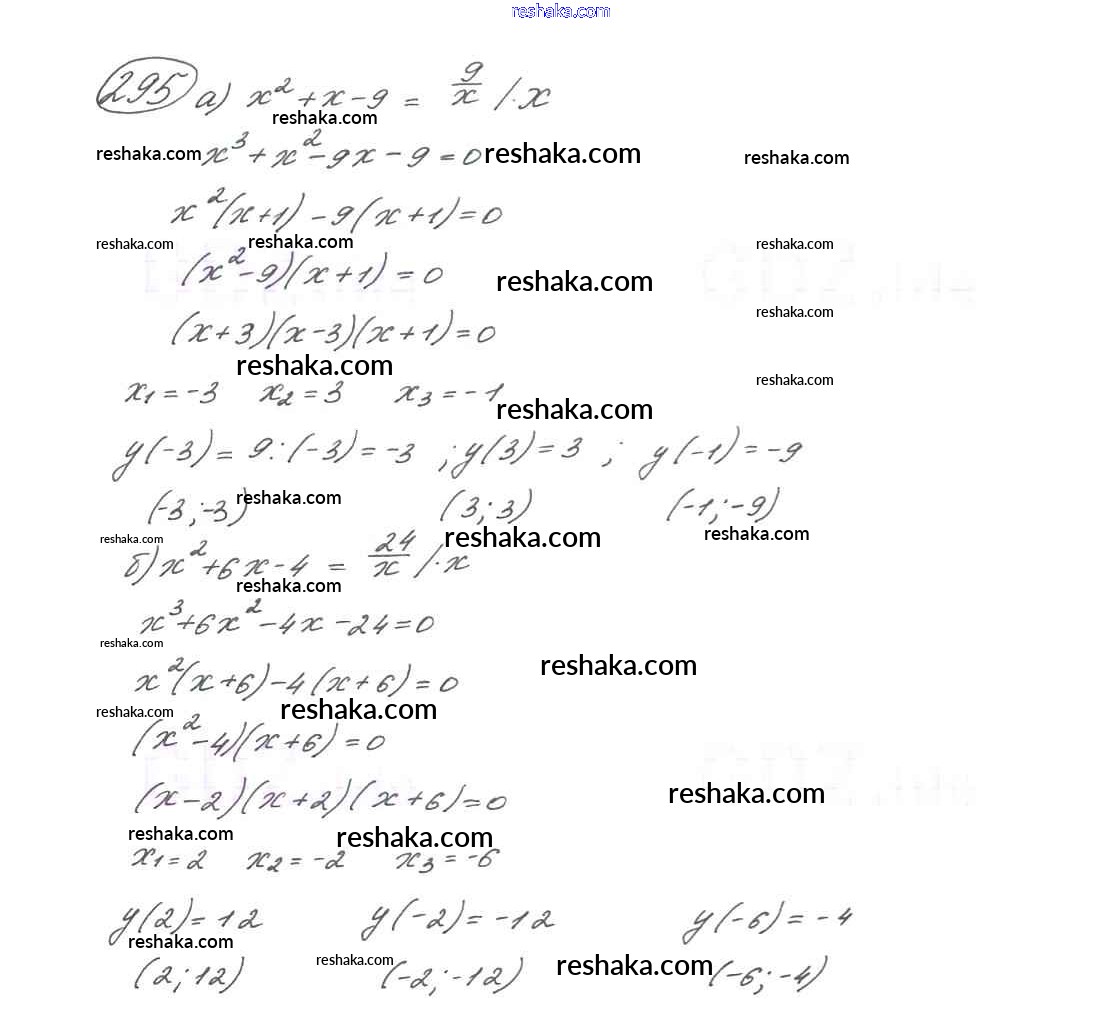 reshaka.com
295 а) x² + x - 9 = 9/x / ·x
reshaka.com
reshaka.com x³ + x² - 9x - 9 = 0 reshaka.com reshaka.com
x²(x+1) - 9(x+1) = 0
reshaka.com reshaka.com reshaka.com
(x² - 9)(x+1) = 0 reshaka.com
reshaka.com
(x+3)(x-3)(x+1) = 0
reshaka.com
reshaka.com
x₁ = -3 x₂ = 3 x₃ = -1
reshaka.com
y(-3) = 9:(-3) = -3 ; y(3) = 3 ; y(-1) = -9
(-3;-3) reshaka.com (3;3) (-1;-9)
reshaka.com reshaka.com reshaka.com
б) x² + 6x - 4 = 24/x / ·x
reshaka.com
x³ + 6x² - 4x - 24 = 0
reshaka.com
reshaka.com
x²(x+6) - 4(x+6) = 0
reshaka.com reshaka.com
(x² - 4)(x+6) = 0
(x-2)(x+2)(x+6) = 0 reshaka.com
reshaka.com reshaka.com
x₁ = 2 x₂ = -2 x₃ = -6
y(2) = 12 y(-2) = -12 y(-6) = -4
reshaka.com
reshaka.com reshaka.com
(2;12) (-2;-12) (-6;-4)